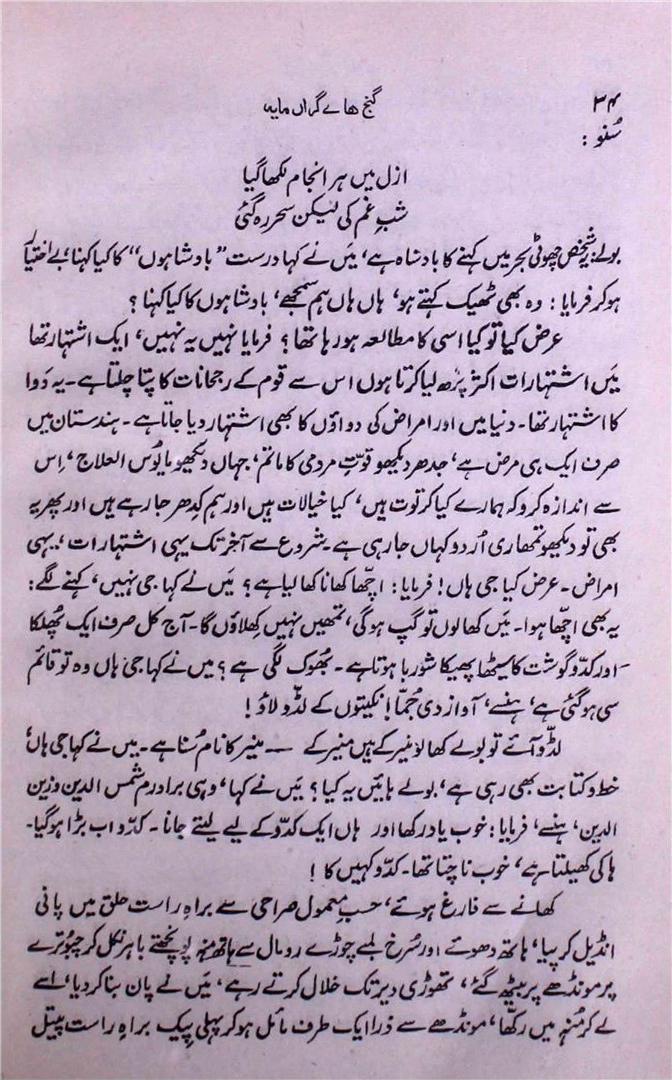 ۳۴ گنج ھاے گراں مایہ
سُنو :
ازل میں ہر انجام لکھا گیا
شبِ غم کی لیکن سحر رہ گئی
بولے: یہ شخص چھوٹی بحر میں کہنے کا بادشاہ ہے، میَں نے کہا درست ”بادشاہوں“ کا کیا کہنا، بے اختیار
ہو کر فرمایا : وہ بھی ٹھیک کہتے ہو، ہاں ہاں ہم سمجھے، بادشاہوں کا کیا کہنا ؟
عرض کیا تو کیا اسی کا مطالعہ ہو رہا تھا ؟ فرمایا نہیں یہ نہیں، ایک اشتہار تھا
میَں اشتہارات اکثر پڑھ لیا کرتا ہوں اس سے قوم کے رجحانات کا پتا چلتا ہے۔ یہ دَوا
کا اشتہار تھا۔ دنیا میں اور امراض کی دواؤں کا بھی اشتہار دیا جاتا ہے۔ ہندستان میں
صرف ایک ہی مرض ہے، جدھر دیکھو قوّتِ مردمی کا ماتم، جہاں دیکھو مایُوس العلاج، اِس
سے اندازہ کرو کہ ہمارے کیا کرتوت ہیں، کیا خیالات ہیں اور ہم کِدھر جا رہے ہیں اور پھر یہ
بھی تو دیکھو تمھاری اُردو کہاں جا رہی ہے۔ شروع سے آخر تک یہی اشتہارات، یہی
امراض۔ عرض کیا جی ہاں ! فرمایا : اچّھا کھانا کھا لیا ہے ؟ میَں نے کہا جی نہیں، کہنے لگے :
یہ بھی اچّھا ہوا۔ میَں کھا لوں تو گپ ہوگی، تمھیں نہیں کِھلاؤں گا۔ آج کل صرف ایک پُھلکا
اور کدّو گوشت کا سیٹھا پھیکا شوربا ہوتا ہے۔ بُھوک لگی ہے ؟ میں نے کہا جی ہاں وہ تو قائم
سی ہو گئی ہے، ہنسے، آواز دی جُمّا! نکیتوں کے لڈّو لاؤ !
لڈّو آئے تو بولے کھا لو منیر کے ہیں منیر کے — منیر کا نام سُنا ہے۔ میں نے کہا جی ہاں
خط و کتابت بھی رہی ہے، بولے ہائیں یہ کیا ؟ میَں نے کہا، وہی برادرم شمس الدین وزین
الدین، ہنسے، فرمایا : خوب یاد رکھا اور ہاں ایک کدّو کے لیے لیتے جانا۔ کدّو اب بڑا ہو گیا۔
ہاکی کھیلتا ہے، خوب ناچتا تھا۔ کدّو کہیں کا !
کھانے سے فارغ ہوئے، حسبِ معمول صراحی سے براہِ راست حلق میں پانی
انڈیل کر پیا، ہاتھ دھوئے اور سُرخ لمبے چوڑے رومال سے ہاتھ منہ پونچھتے باہر نکل کر چبُوترے
پر مونڈھے پر بیٹھ گئے، تھوڑی دیر تک خلال کرتے رہے، میَں نے پان بنا کر دیا، اسے
لے کر مُنہ میں رکھّا، مونڈھے سے ذرا ایک طرف مائل ہو کر پہلی پیک براہِ راست پیتل